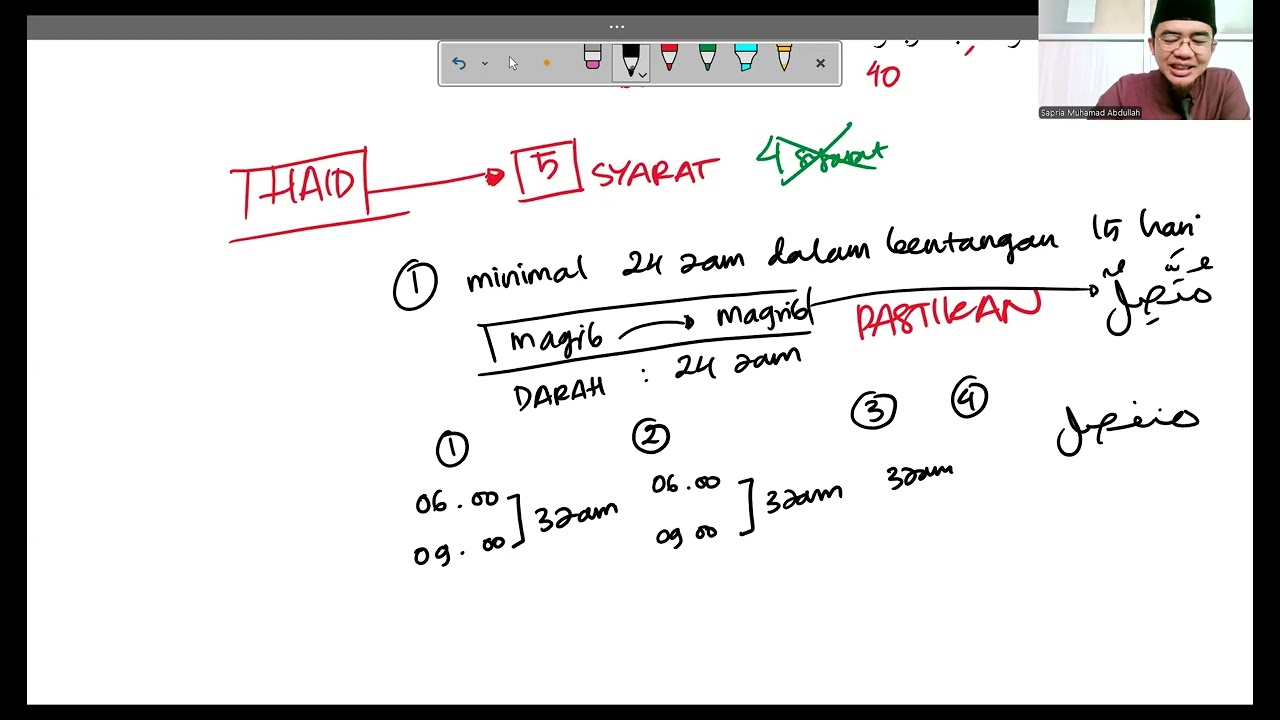 40
Sapria Muhamad Abdullah
HAID → 5 SYARAT 4 syarat
① minimal 24 jam dalam bentangan 15 hari
magib → magrib PASTIKAN
DARAH : 24 jam
① ② ③ ④
06.00 ] 3 jam 06.00 ] 3 jam 3 jam
09.00 09 00